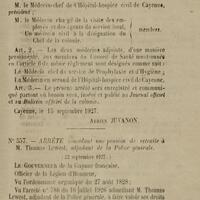 M. le Médecin-chef de l'Hôpital-hospice civil de Cayenne,
président ;
M. le Médecin chargé de la visite des employés et des agents du service local,
Un médecin civil à la désignation du Chef de la colonie.
membres.
Art. 2. — Les deux médecins adjoints, d'une manière
permanente, aux membres du Conseil de Santé mentionnés
en l'article 6 du même règlement sont désignés comme suit :
Le Médecin-chef du service de Prophylaxie et d'Hygiène ;
Le Médecin en second de l'Hôpital-hospice civil de Cayenne.
Art. 3. — Le présent arrêté sera enregistré et communiqué
partout où besoin sera, inséré et publié au Journal officiel
et au Bulletin officiel de la colonie.
Cayenne, le 15 septembre 1927.
Adrien JUVANON.
N° 557. — ARRÊTÉ accordant une pension de retraite à
M. Thomas Lewest, adjudant de la Police générale.
(22 septembre 1927.)
Le Gouverneur de la Guyane française,
Officier de la Légion d'Honneur,
Vu l'ordonnance organique du 27 août 1828 ;
Vu l'arrêté n° 766 du 16 juillet 1926 admettant M. Thomas
Lewest, adjudant de la Police générale, à faire valoir ses droits